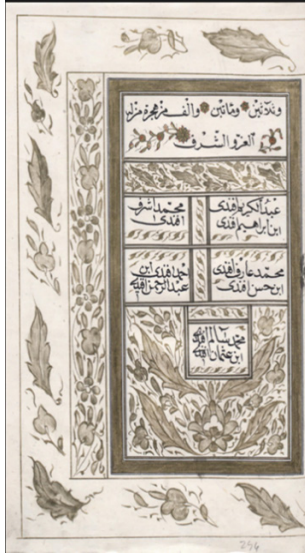 وثلاثين ومائتين والف من هجرة من له
العز والشرف
عبد الكريم افندى
ابن ابراهيم افندى
محمد اشرف
افندى
محمد عارف افندى
ابن حسن افندى
احمد افندى ابن
عبد الرحمن افندى
محمد سالم افندى
ابن عثمان افندى